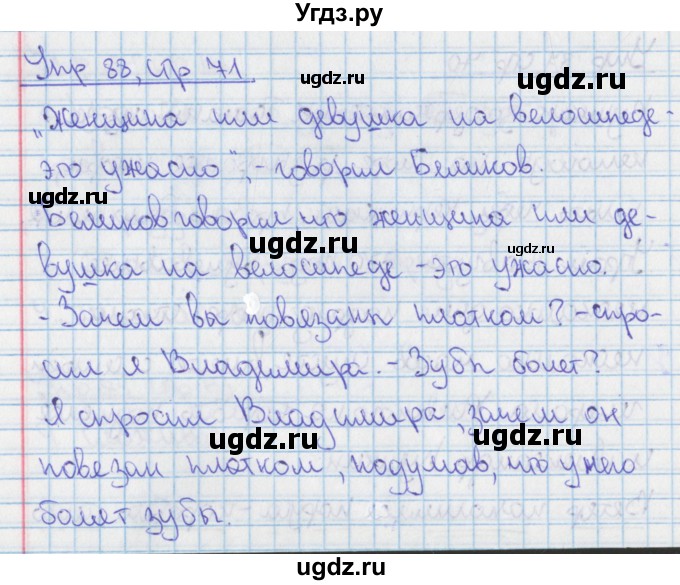 Угдз.ру
Упр 88, стр 71.
ugdz.ru
ugdz.ru
„Женщина или девушка на велосипеде-
это ужасно", - говорил Беликов.
ugdz.ru
Беликов говорил что женщина или де-
ugdz.ru
ugdz.ru
вушка на велосипеде - это ужасно.
- Зачем вы повязаны платком? - спро-
ugdz.ru
ugdz.ru
сил я Владимира. - Зубы болят?
Я спросил Владимира, зачем он
ugdz.ru
ugdz.ru
повязан платком, подумав, что у него
болят зубы.
ugdz.ru
ugdz.ru